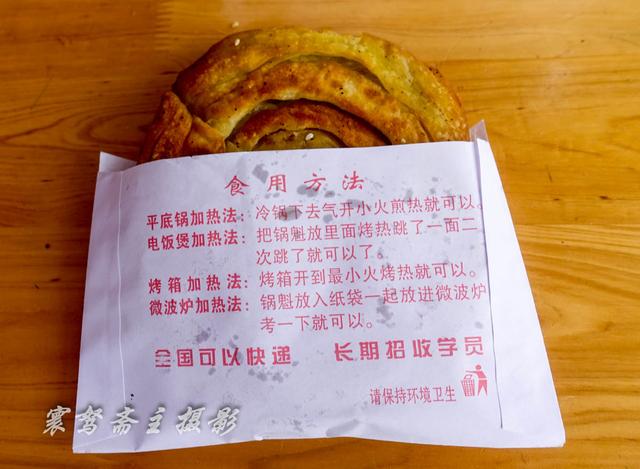 食用方法
平底锅加热法：冷锅下去气开小火煎热就可以。
电饭煲加热法：把锅魁放里面烤热跳了一面二
次跳了就可以了。
烤箱加热法：烤箱开到最小火烤热就可以。
微波炉加热法：锅魁放入纸袋一起放进微波炉
考一下就可以。
全国可以快递 长期招收学员
请保持环境卫生
寰驽斋主摄影